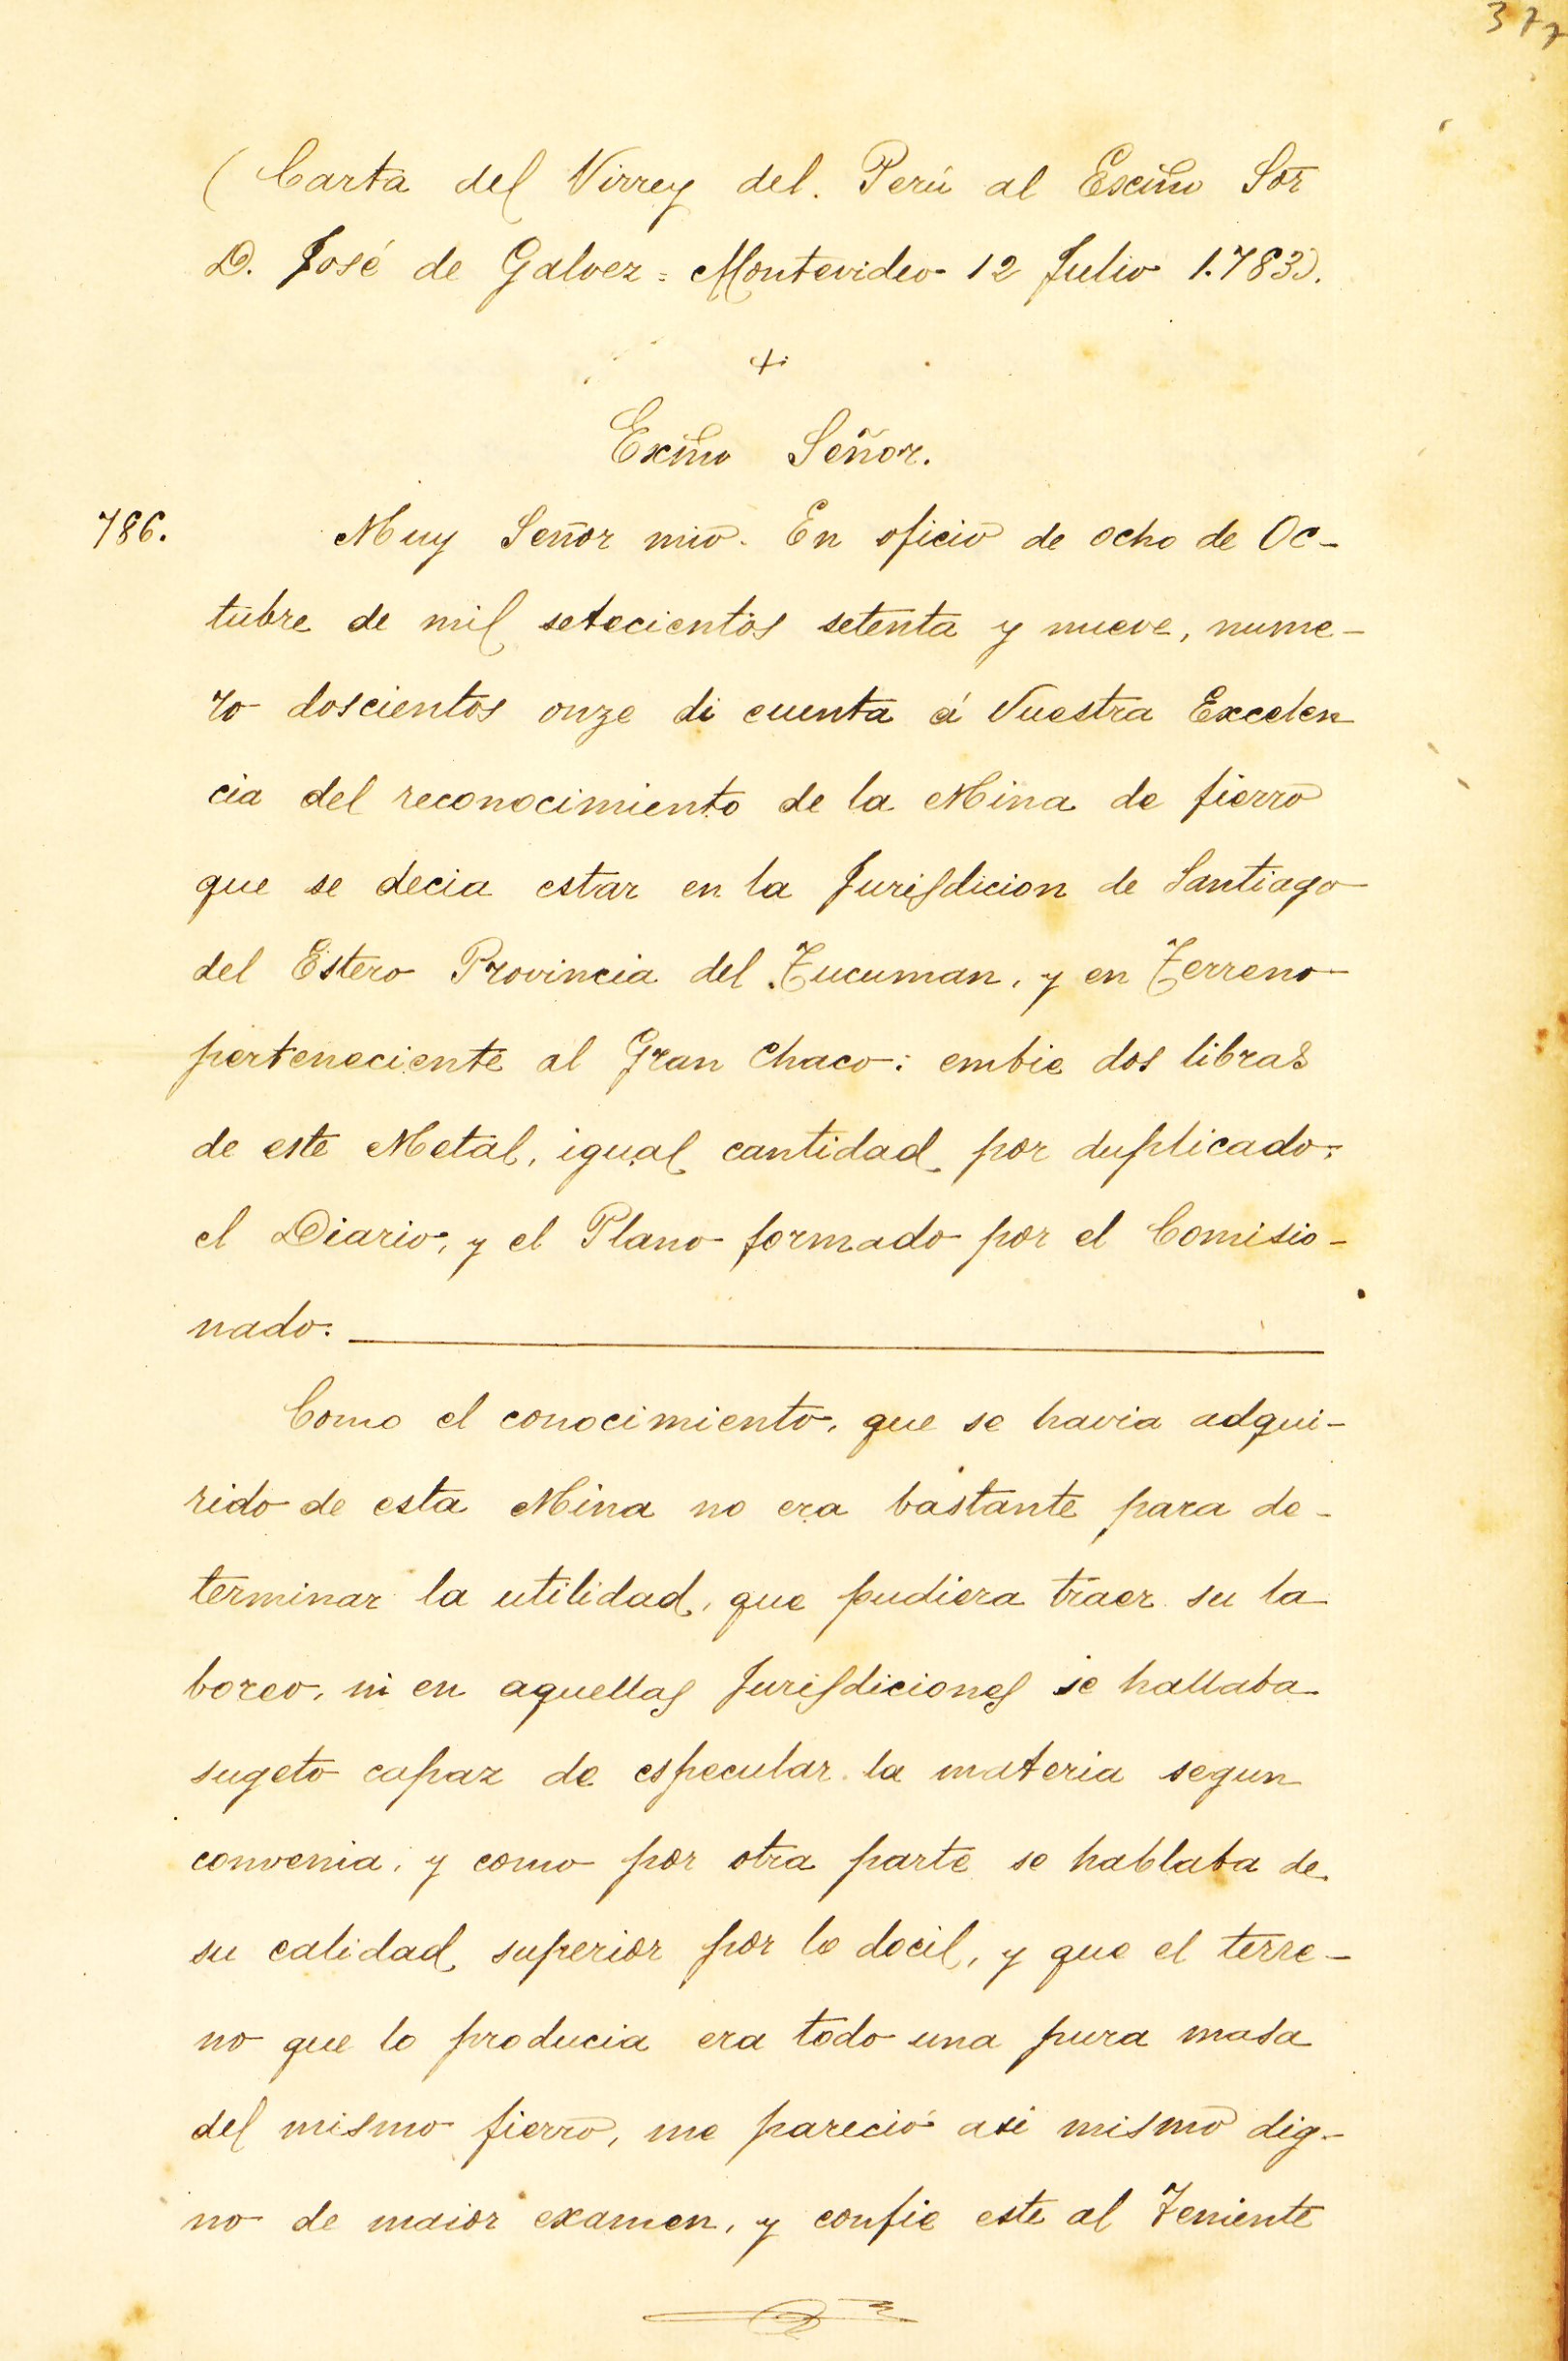 377
(Carta del Virrey del. Perú al Excmo Sor
D. José de Galvez = Montevideo 12 Julio 1.783).
+
Exmo Señor.
786. Muy Señor mio. En oficio de ocho de Oc-
tubre de mil setecientos setenta y nueve, nume-
ro doscientos onze di cuenta á Vuestra Excelen
cia del reconocimiento de la Mina de fierro
que se decia estar en la Jurisdicion de Santiago
del Estero Provincia del Tucuman, y en Terreno
perteneciente al Gran Chaco: embie dos libras
de este Metal, igual cantidad por duplicado:
el Diario, y el Plano formado por el Comisio-
nado.
Como el conocimiento, que se havia adqui-
rido de esta Mina no era bastante para de-
terminar la utilidad, que pudiera traer su la
boreo, ni en aquellas Jurisdiciones se hallaba
sugeto capaz de especular la materia segun
convenia, y como por otra parte se hablaba de
su calidad superior por lo docil, y que el terre-
no que lo producia era todo una pura masa
del mismo fierro, me pareció asi mismo dig-
no de maior examen, y confie este al Teniente